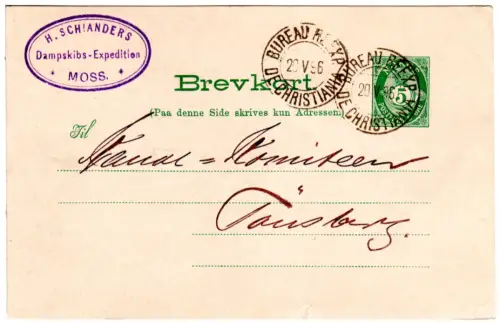 H. SCHIANDERS
Dampskibs-Expedition
MOSS.
BUREAU REEXP.
20 V 96
DE CHRISTIANIA
BUREAU REEXP.
20 V 96
DE CHRISTIANIA
5
Brevkort.
(Paa denne Side skrives kun Adressen)
Til
Kanal=Komiteen
Tönsberg.